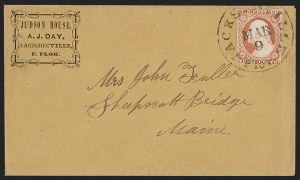 JUDSON HOUSE,
A. J. DAY,
JACKSONVILLE,
E. FLOR.
MAR
9
Mrs John Fuller
Sheepscott Bridge
Maine